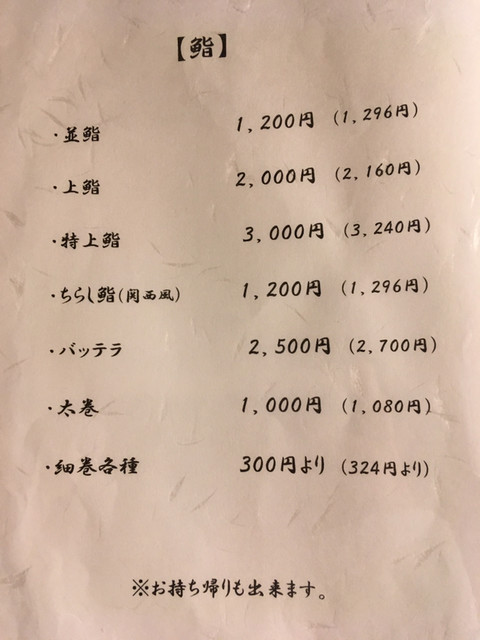 【鮨】
・並鮨 1,200円 (1,296円)
・上鮨 2,000円 (2,160円)
・特上鮨 3,000円 (3,240円)
・ちらし鮨(関西風) 1,200円 (1,296円)
・バッテラ 2,500円 (2,700円)
・太巻 1,000円 (1,080円)
・細巻各種 300円より (324円より)
※お持ち帰りも出来ます。